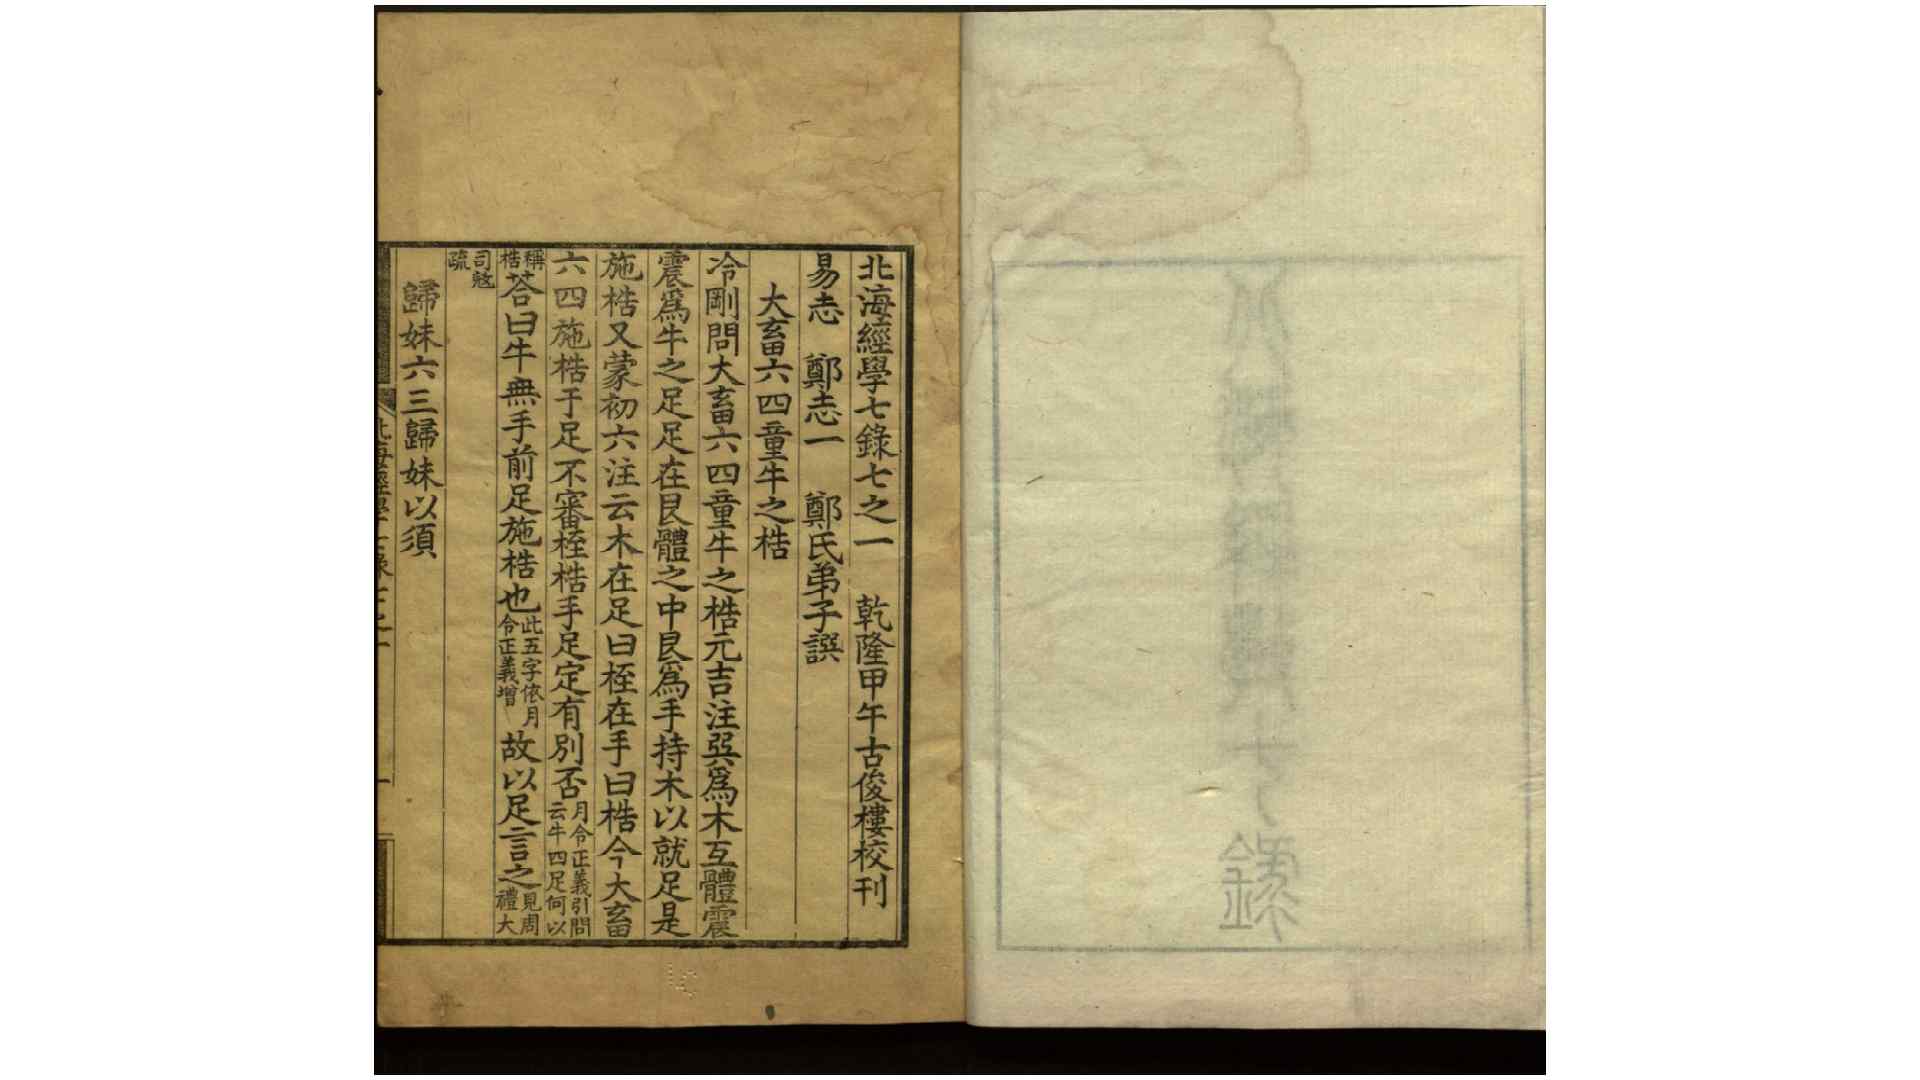 北海經學七錄七之一　乾隆甲午古俊樓校刊
易志　鄭志一　鄭氏弟子譔
大畜六四童牛之梏
冷剛問大畜六四童牛之梏元吉注巽爲木互體震
震爲牛之足足在艮體之中艮爲手持木以就足是
施梏又蒙初六注云木在足曰桎在手曰梏今大畜
六四施梏于足不審桎梏手足定有別否月令正義引問云牛四足何以
稱梏荅曰牛無手前足施梏也此五字依月令正義增故以足言之見周禮大
司寇疏
歸妹六三歸妹以須
北海經學七錄七之一
一